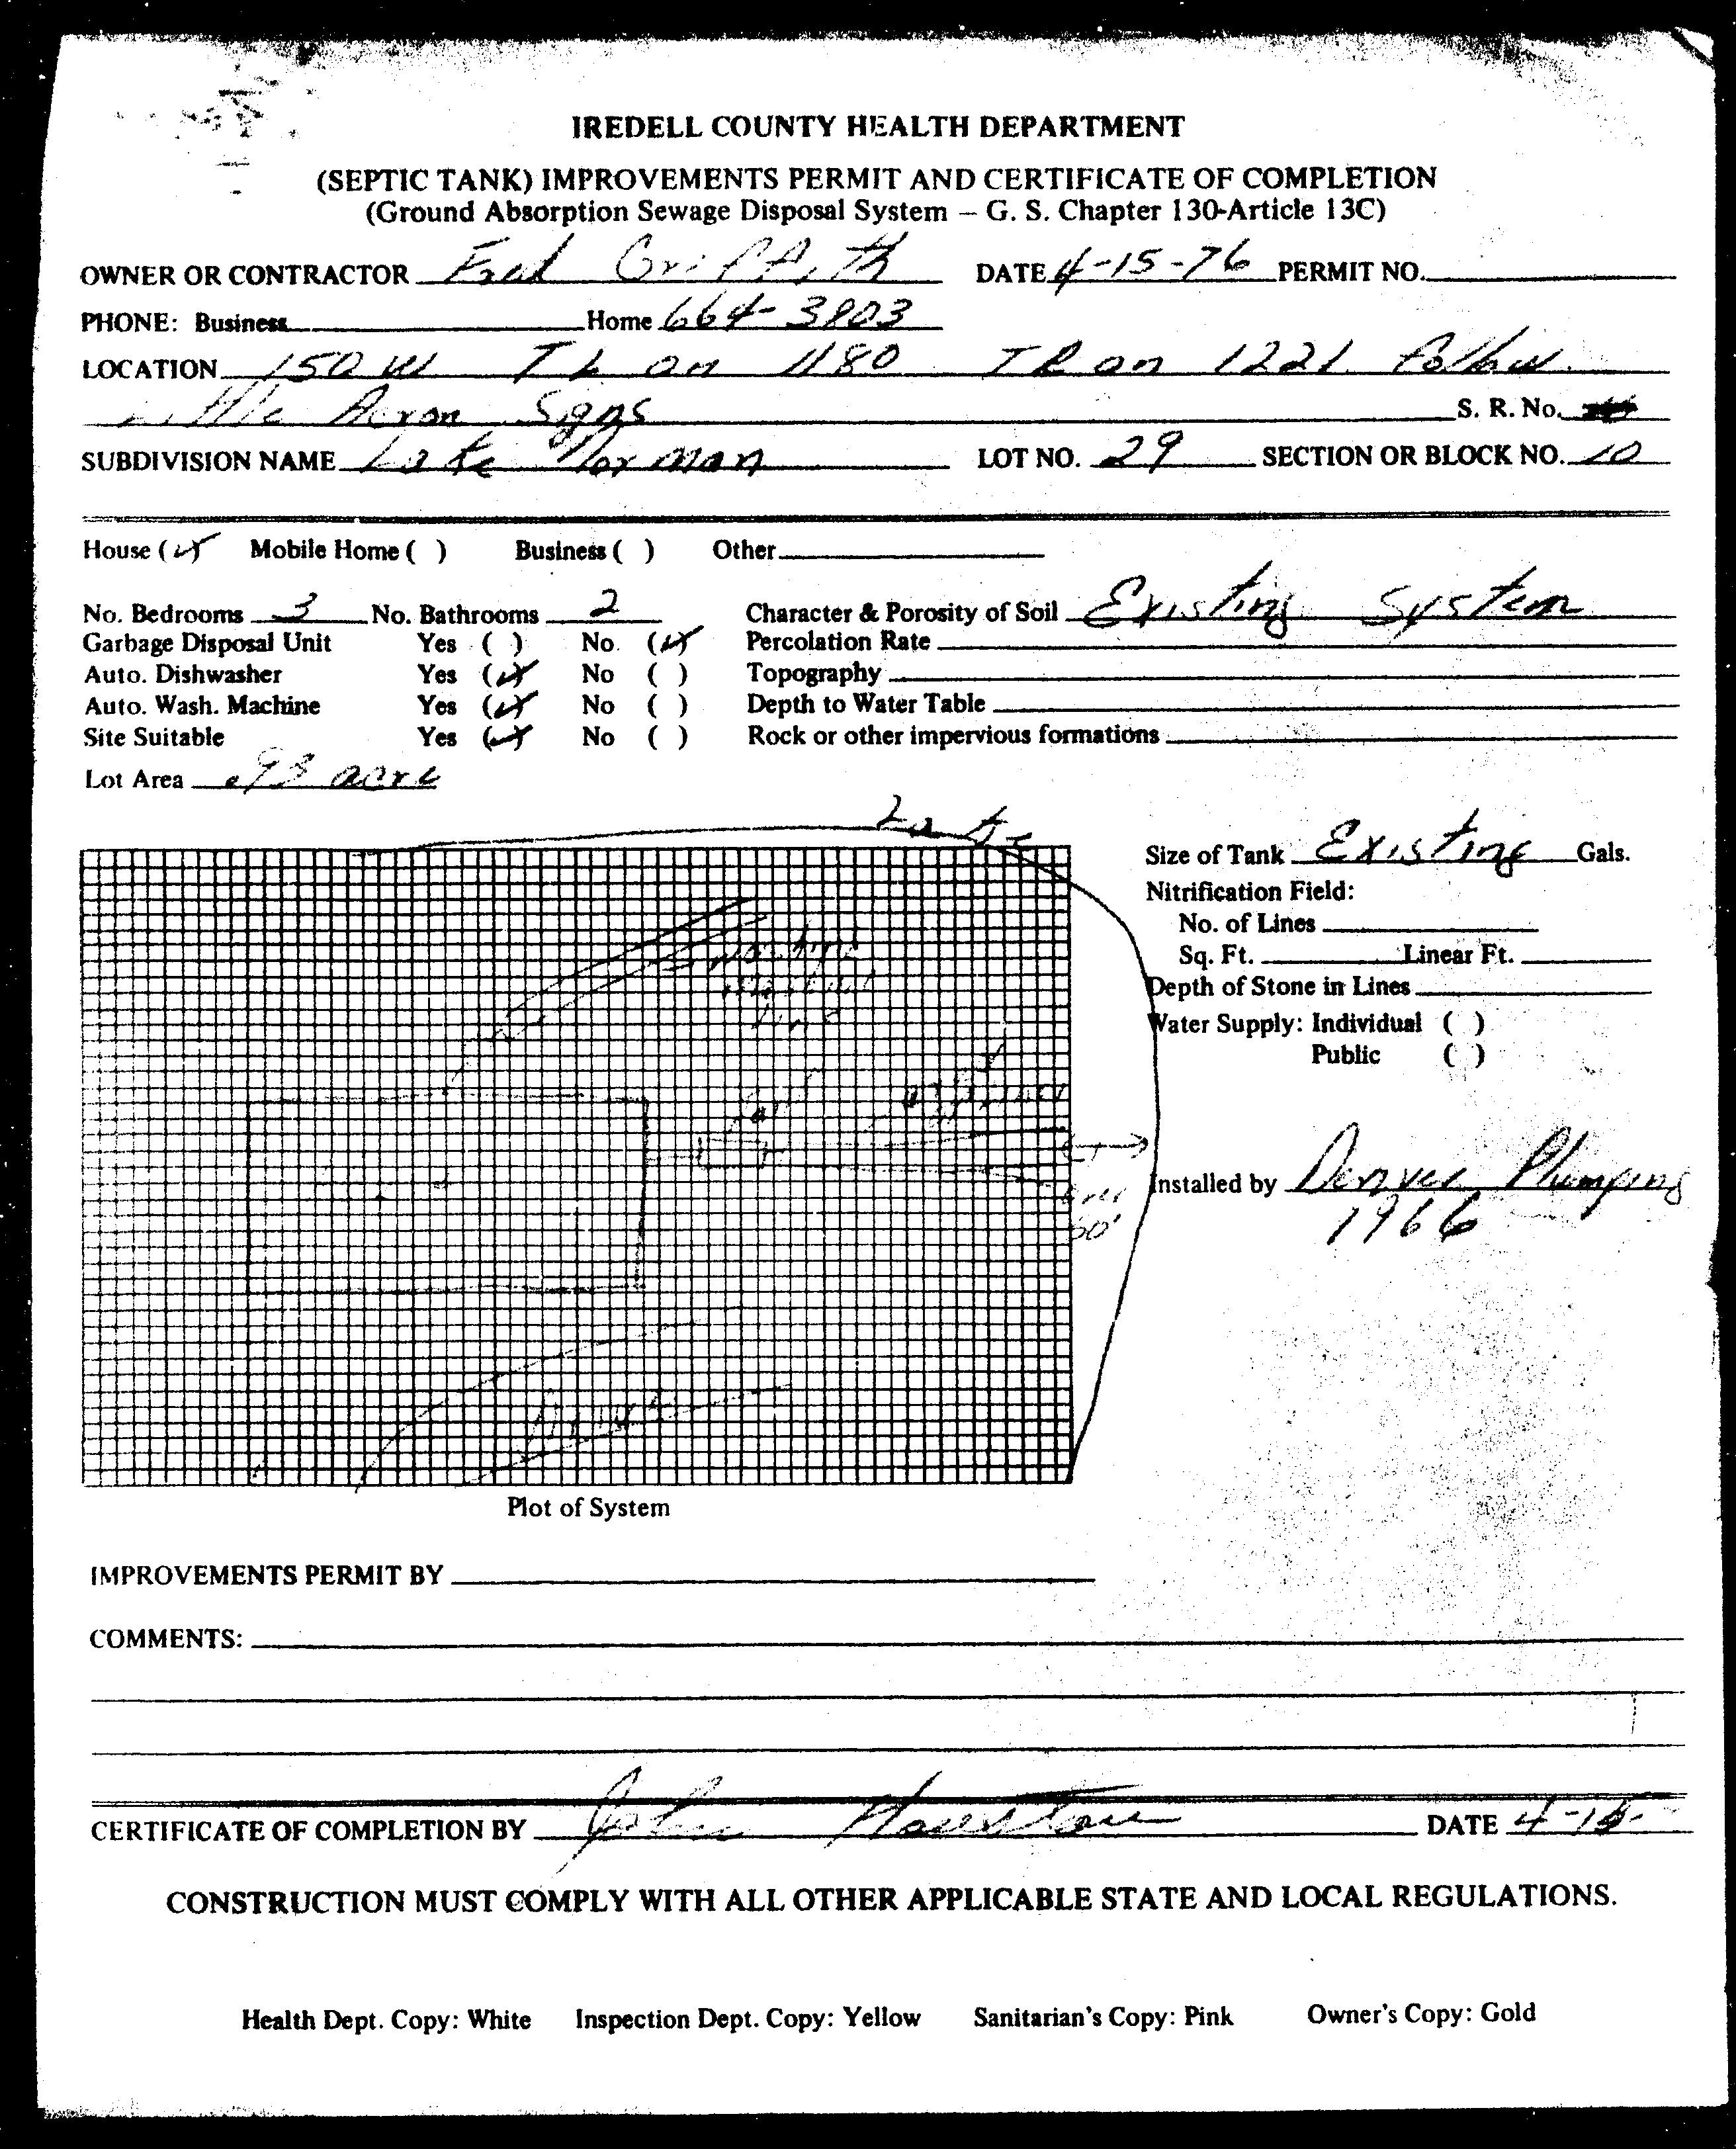 IREDELL COUNTY HEALTH DEPARTMENT
(SEPTIC TANK) IMPROVEMENTS PERMIT AND CERTIFICATE OF COMPLETION
(Ground Absorption Sewage Disposal System – G. S. Chapter 130-Article 13C)
OWNER OR CONTRACTOR Fred Griffith DATE 4-15-76 PERMIT NO.
PHONE: Business Home 664-3903
LOCATION 150 W TL on 1180 TR on 1221 Follow
Little Acron Signs S. R. No.
SUBDIVISION NAME Lake Norman LOT NO. 29 SECTION OR BLOCK NO. 10
House (✓) Mobile Home ( ) Business ( ) Other
No. Bedrooms 3 No. Bathrooms 2 Character & Porosity of Soil Existing System
Garbage Disposal Unit Yes ( ) No. (✓) Percolation Rate
Auto. Dishwasher Yes (✓) No ( ) Topography
Auto. Wash. Machine Yes (✓) No ( ) Depth to Water Table
Site Suitable Yes (✓) No ( ) Rock or other impervious formations
Lot Area .93 acre
Lake
Size of Tank Existing Gals.
Nitrification Field:
No. of Lines
Sq. Ft. Linear Ft.
Depth of Stone in Lines
Water Supply: Individual ( )
Public ( )
Over
50'
Installed by Denver Plumping
1966
Plot of System
IMPROVEMENTS PERMIT BY
COMMENTS:
CERTIFICATE OF COMPLETION BY John DATE 4-15-
CONSTRUCTION MUST COMPLY WITH ALL OTHER APPLICABLE STATE AND LOCAL REGULATIONS.
Health Dept. Copy: White Inspection Dept. Copy: Yellow Sanitarian's Copy: Pink Owner's Copy: Gold